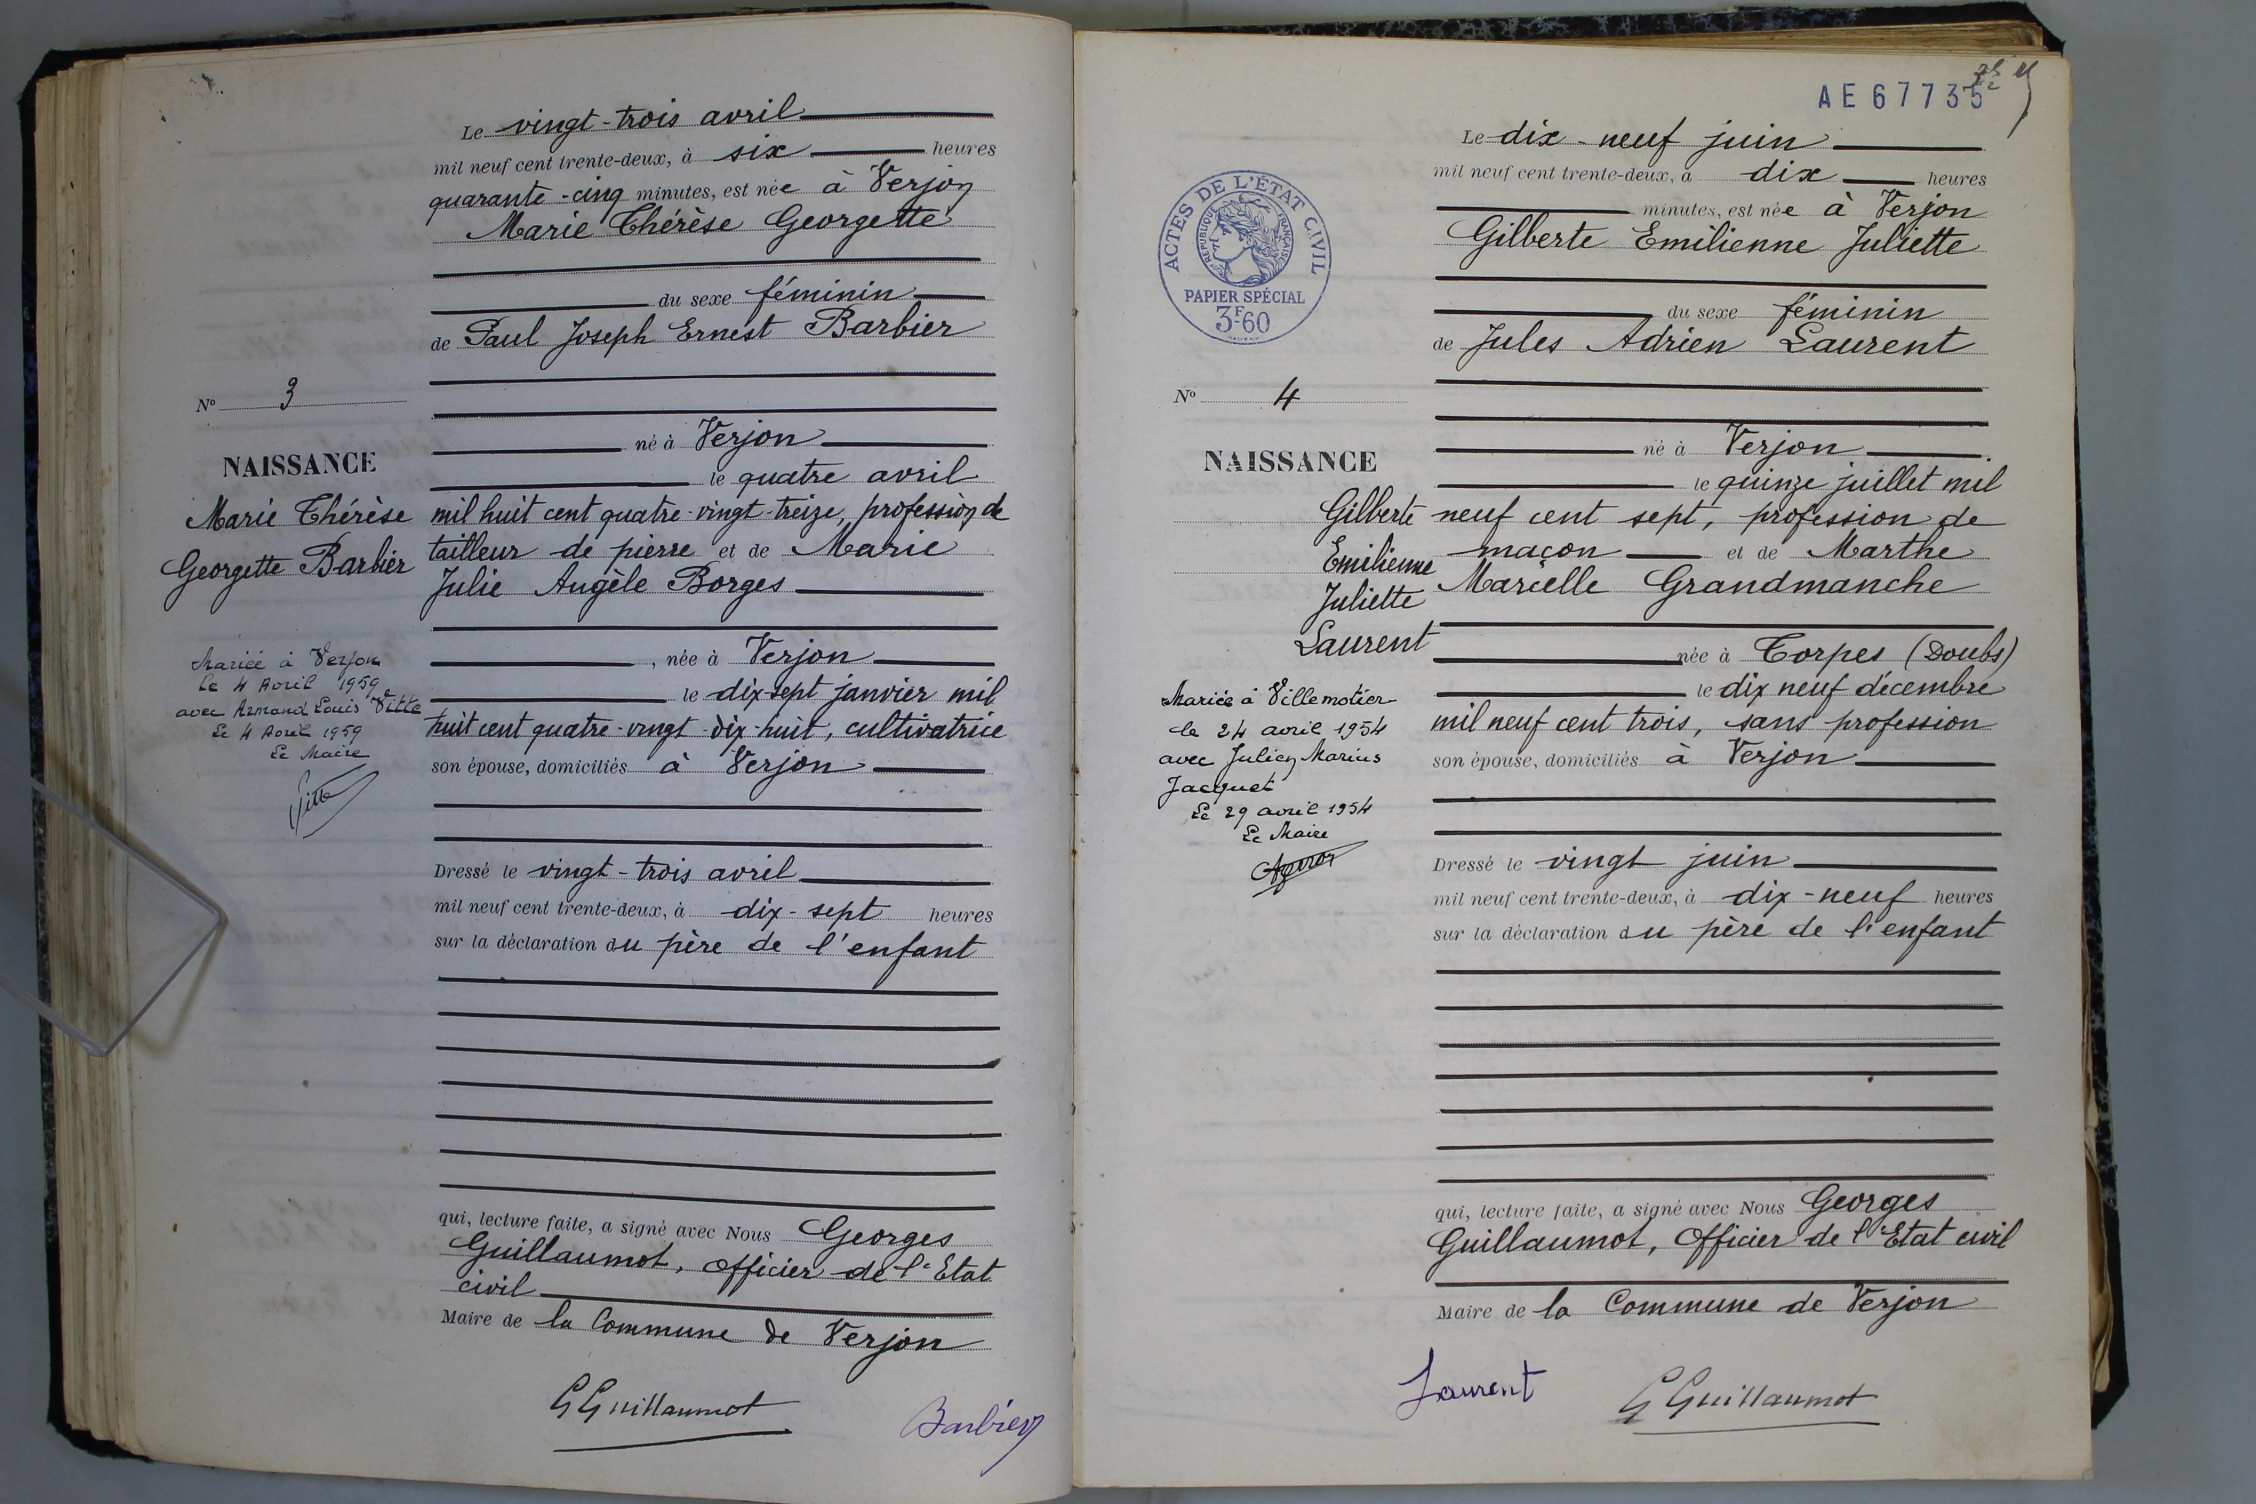 Le vingt-trois avril
mil neuf cent trente-deux, à six heures
quarante-cinq minutes, est née à Verjon
Marie Thérèse Georgette
du sexe féminin
de Paul Joseph Ernest Barbier
né à Verjon
le quatre avril
mil huit cent quatre-vingt-treize, profession de
tailleur de pierre et de Marie
Julie Angèle Borges
, née à Verjon
le dix-sept janvier mil
huit cent quatre-vingt-dix-huit, cultivatrice
son épouse, domiciliés à Verjon
Dressé le vingt-trois avril
mil neuf cent trente-deux, à dix-sept heures
sur la déclaration du père de l'enfant
qui, lecture faite, a signé avec Nous Georges
Guillaumot, officier de l'Etat
civil
Maire de la Commune de Verjon
GGuillaumot
Barbier
No 3
NAISSANCE
Marie Thérèse
Georgette Barbier
Mariée à Verjon
le 4 Avril 1959
avec Armand Louis Vitte
Le 4 Avril 1959
Le Maire
Vitte
AE67735
Le dix-neuf juin
mil neuf cent trente-deux, à dix heures
minutes, est née à Verjon
Gilberte Emilienne Juliette
du sexe féminin
de Jules Adrien Laurent
né à Verjon
le quinze juillet mil
neuf cent sept, profession de
maçon et de Marthe
Marielle Grandmanche
née à Torpes (Doubs)
le dix neuf décembre
mil neuf cent trois, sans profession
son épouse, domiciliés à Verjon
Dressé le vingt juin
mil neuf cent trente-deux, à dix-neuf heures
sur la déclaration du père de l'enfant
qui, lecture faite, a signé avec Nous Georges
Guillaumot, Officier de l'Etat civil
Maire de la Commune de Verjon
Laurent
GGuillaumot
ACTES DE L'ÉTAT CIVIL
RÉPUBLIQUE FRANÇAISE
PAPIER SPÉCIAL
3F60
No 4
NAISSANCE
Gilberte
Emilienne
Juliette
Laurent
Mariée à Villemotier
le 24 avril 1954
avec Julien Marius
Jacquet
Le 29 avril 1954
Le Maire